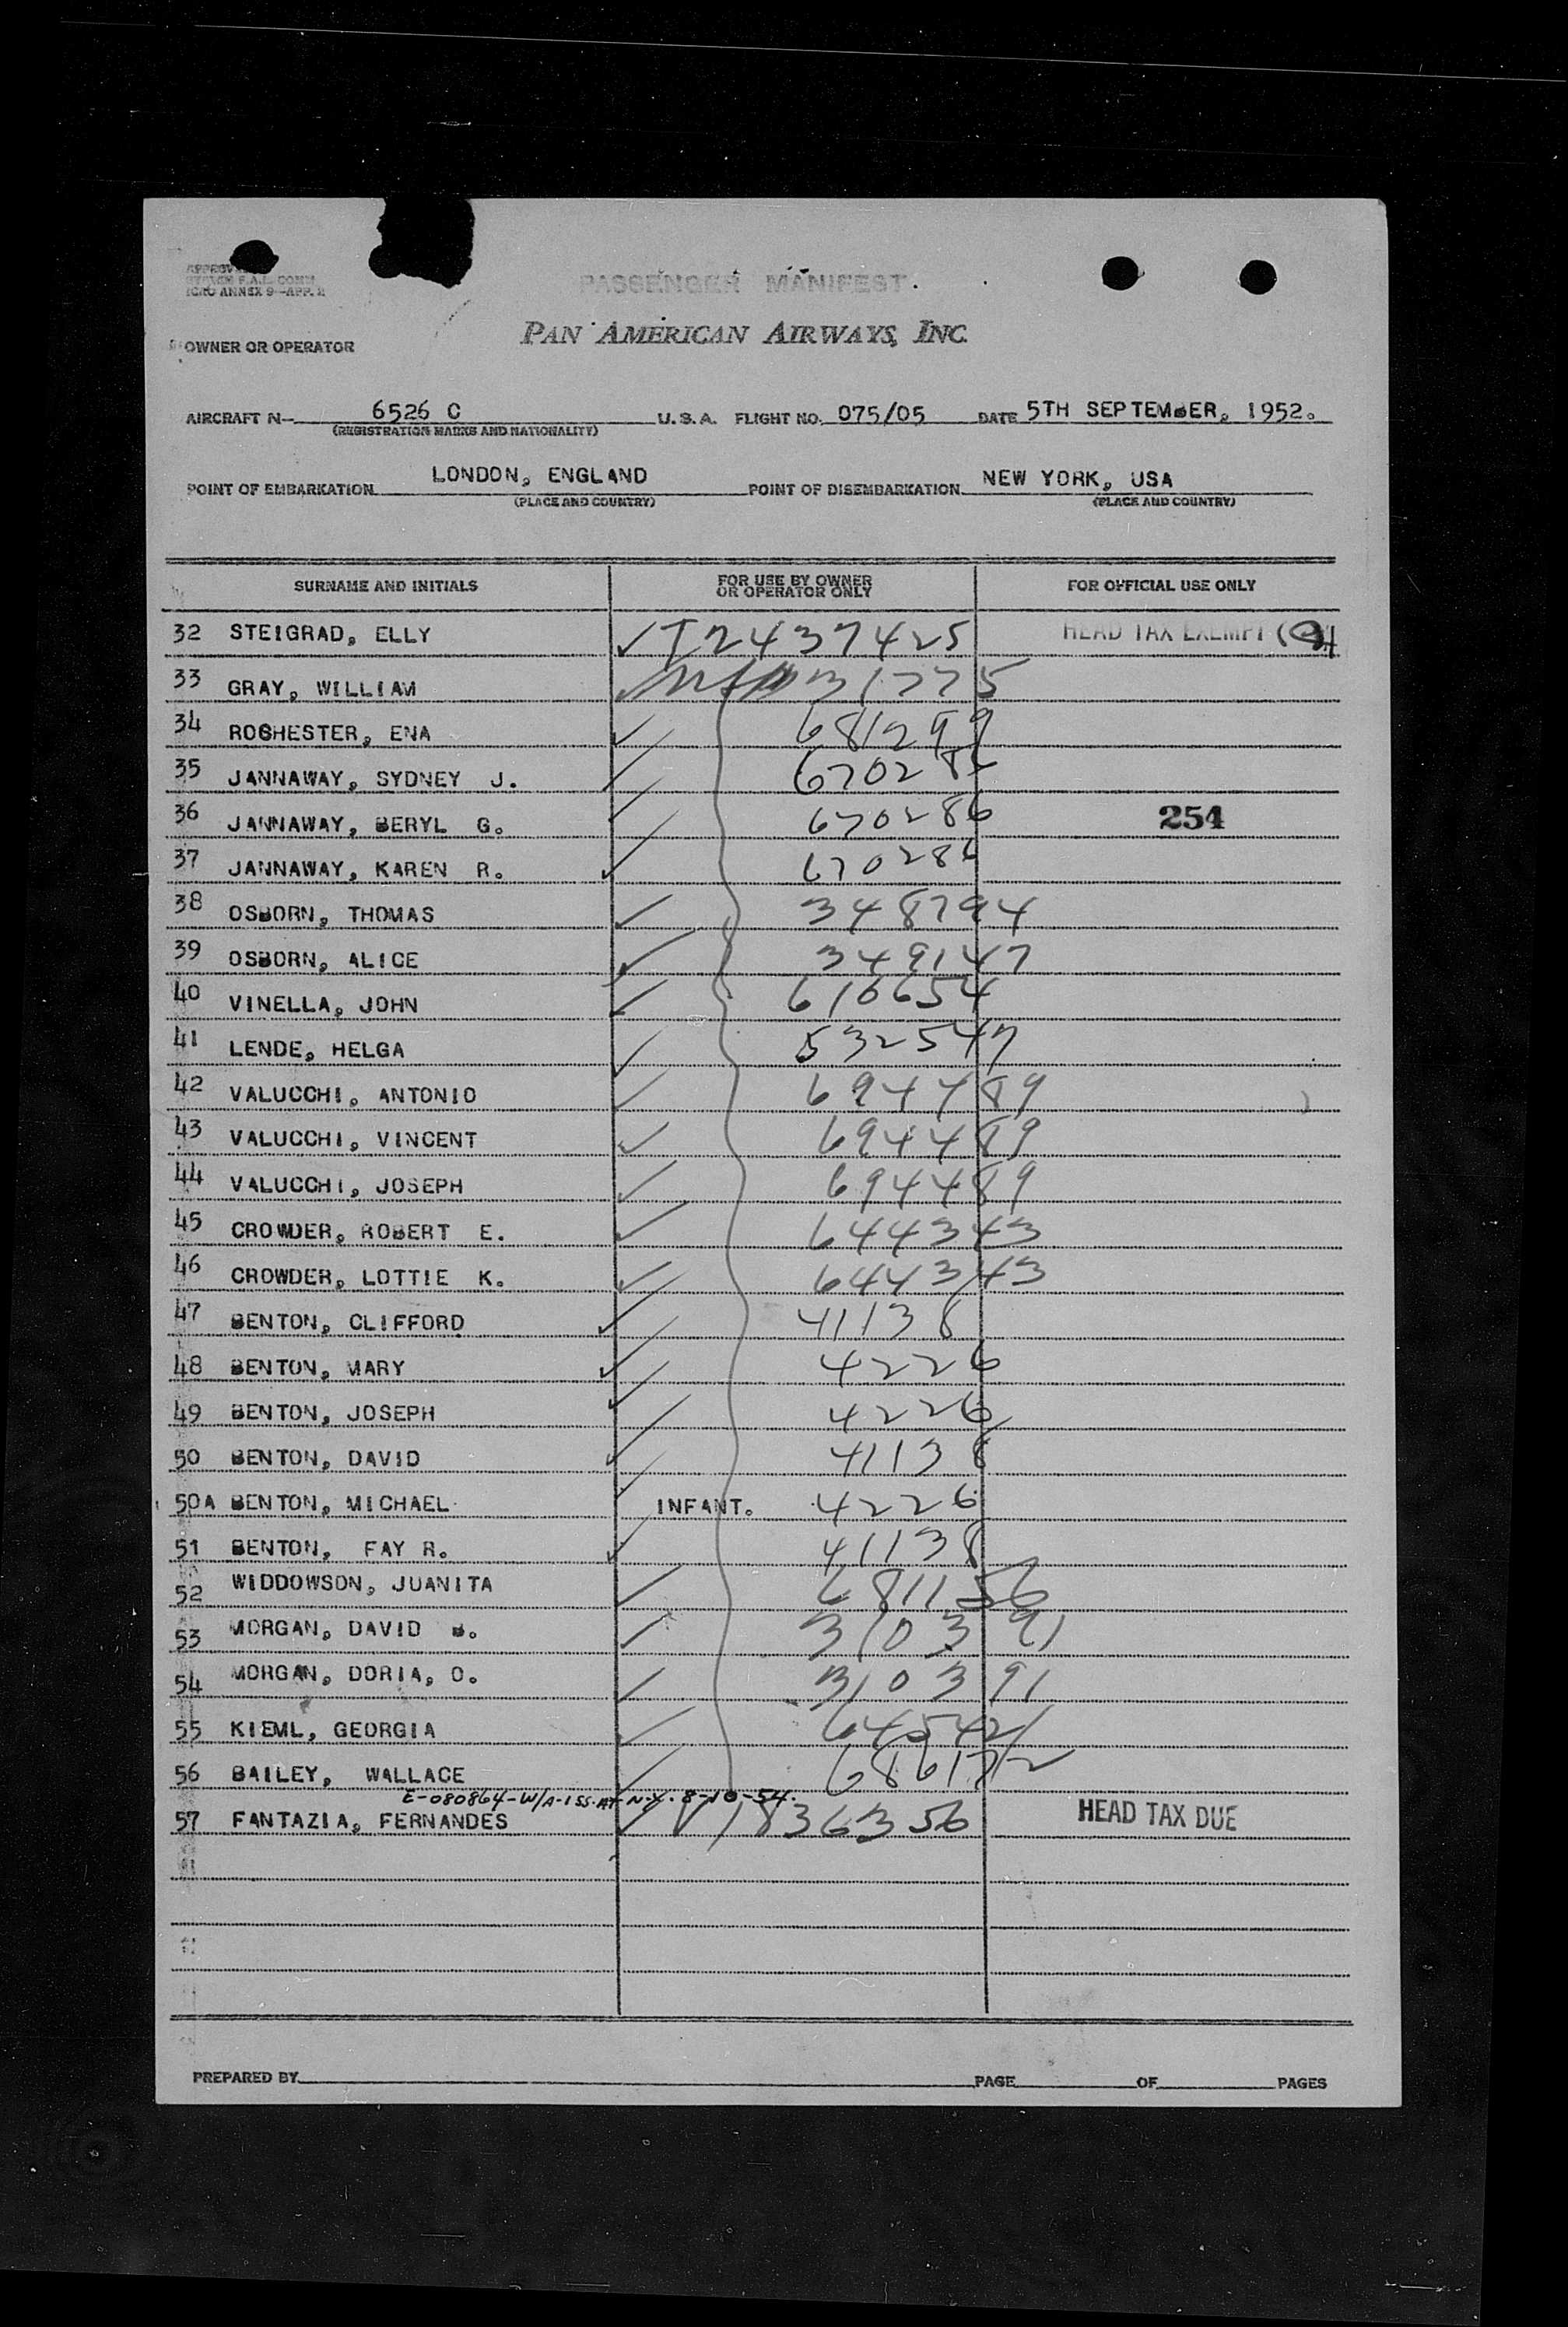 ICAO ANNEX 9—APP. 2
PASSENGER MANIFEST
PAN AMERICAN AIRWAYS, INC.
OWNER OR OPERATOR
AIRCRAFT N— 6526 C U.S.A. FLIGHT NO. 075/05 DATE 5TH SEPTEMBER, 1952.
(REGISTRATION MARKS AND NATIONALITY)
POINT OF EMBARKATION LONDON, ENGLAND POINT OF DISEMBARKATION NEW YORK, USA
(PLACE AND COUNTRY) (PLACE AND COUNTRY)
SURNAME AND INITIALS FOR USE BY OWNER OR OPERATOR ONLY FOR OFFICIAL USE ONLY
32 STEIGRAD, ELLY ✓ I2437425 HEAD TAX EXEMPT
33 GRAY, WILLIAM ✓ 31775
34 ROCHESTER, ENA ✓ 681299
35 JANNAWAY, SYDNEY J. ✓ 670286
36 JANNAWAY, BERYL G. ✓ 670286 254
37 JANNAWAY, KAREN R. ✓ 670286
38 OSBORN, THOMAS ✓ 348794
39 OSBORN, ALICE ✓ 349147
40 VINELLA, JOHN ✓ 610654
41 LENDE, HELGA ✓ 532547
42 VALUCCHI, ANTONIO ✓ 694489
43 VALUCCHI, VINCENT ✓ 694489
44 VALUCCHI, JOSEPH ✓ 694489
45 CROWDER, ROBERT E. ✓ 644343
46 CROWDER, LOTTIE K. ✓ 644343
47 BENTON, CLIFFORD ✓ 41138
48 BENTON, MARY ✓ 4226
49 BENTON, JOSEPH ✓ 4226
50 BENTON, DAVID ✓ 41138
50A BENTON, MICHAEL ✓ INFANT. 4226
51 BENTON, FAY R. ✓ 41138
52 WIDDOWSON, JUANITA ✓ 681156
53 MORGAN, DAVID B. ✓ 310391
54 MORGAN, DORIA, O. ✓ 310391
55 KIEML, GEORGIA ✓ 64542
56 BAILEY, WALLACE ✓ 686172
E-080864-W/A-ISS. AT N.Y. 8-10-54.
57 FANTAZIA, FERNANDES ✓ V1836356 HEAD TAX DUE
PREPARED BY PAGE OF PAGES